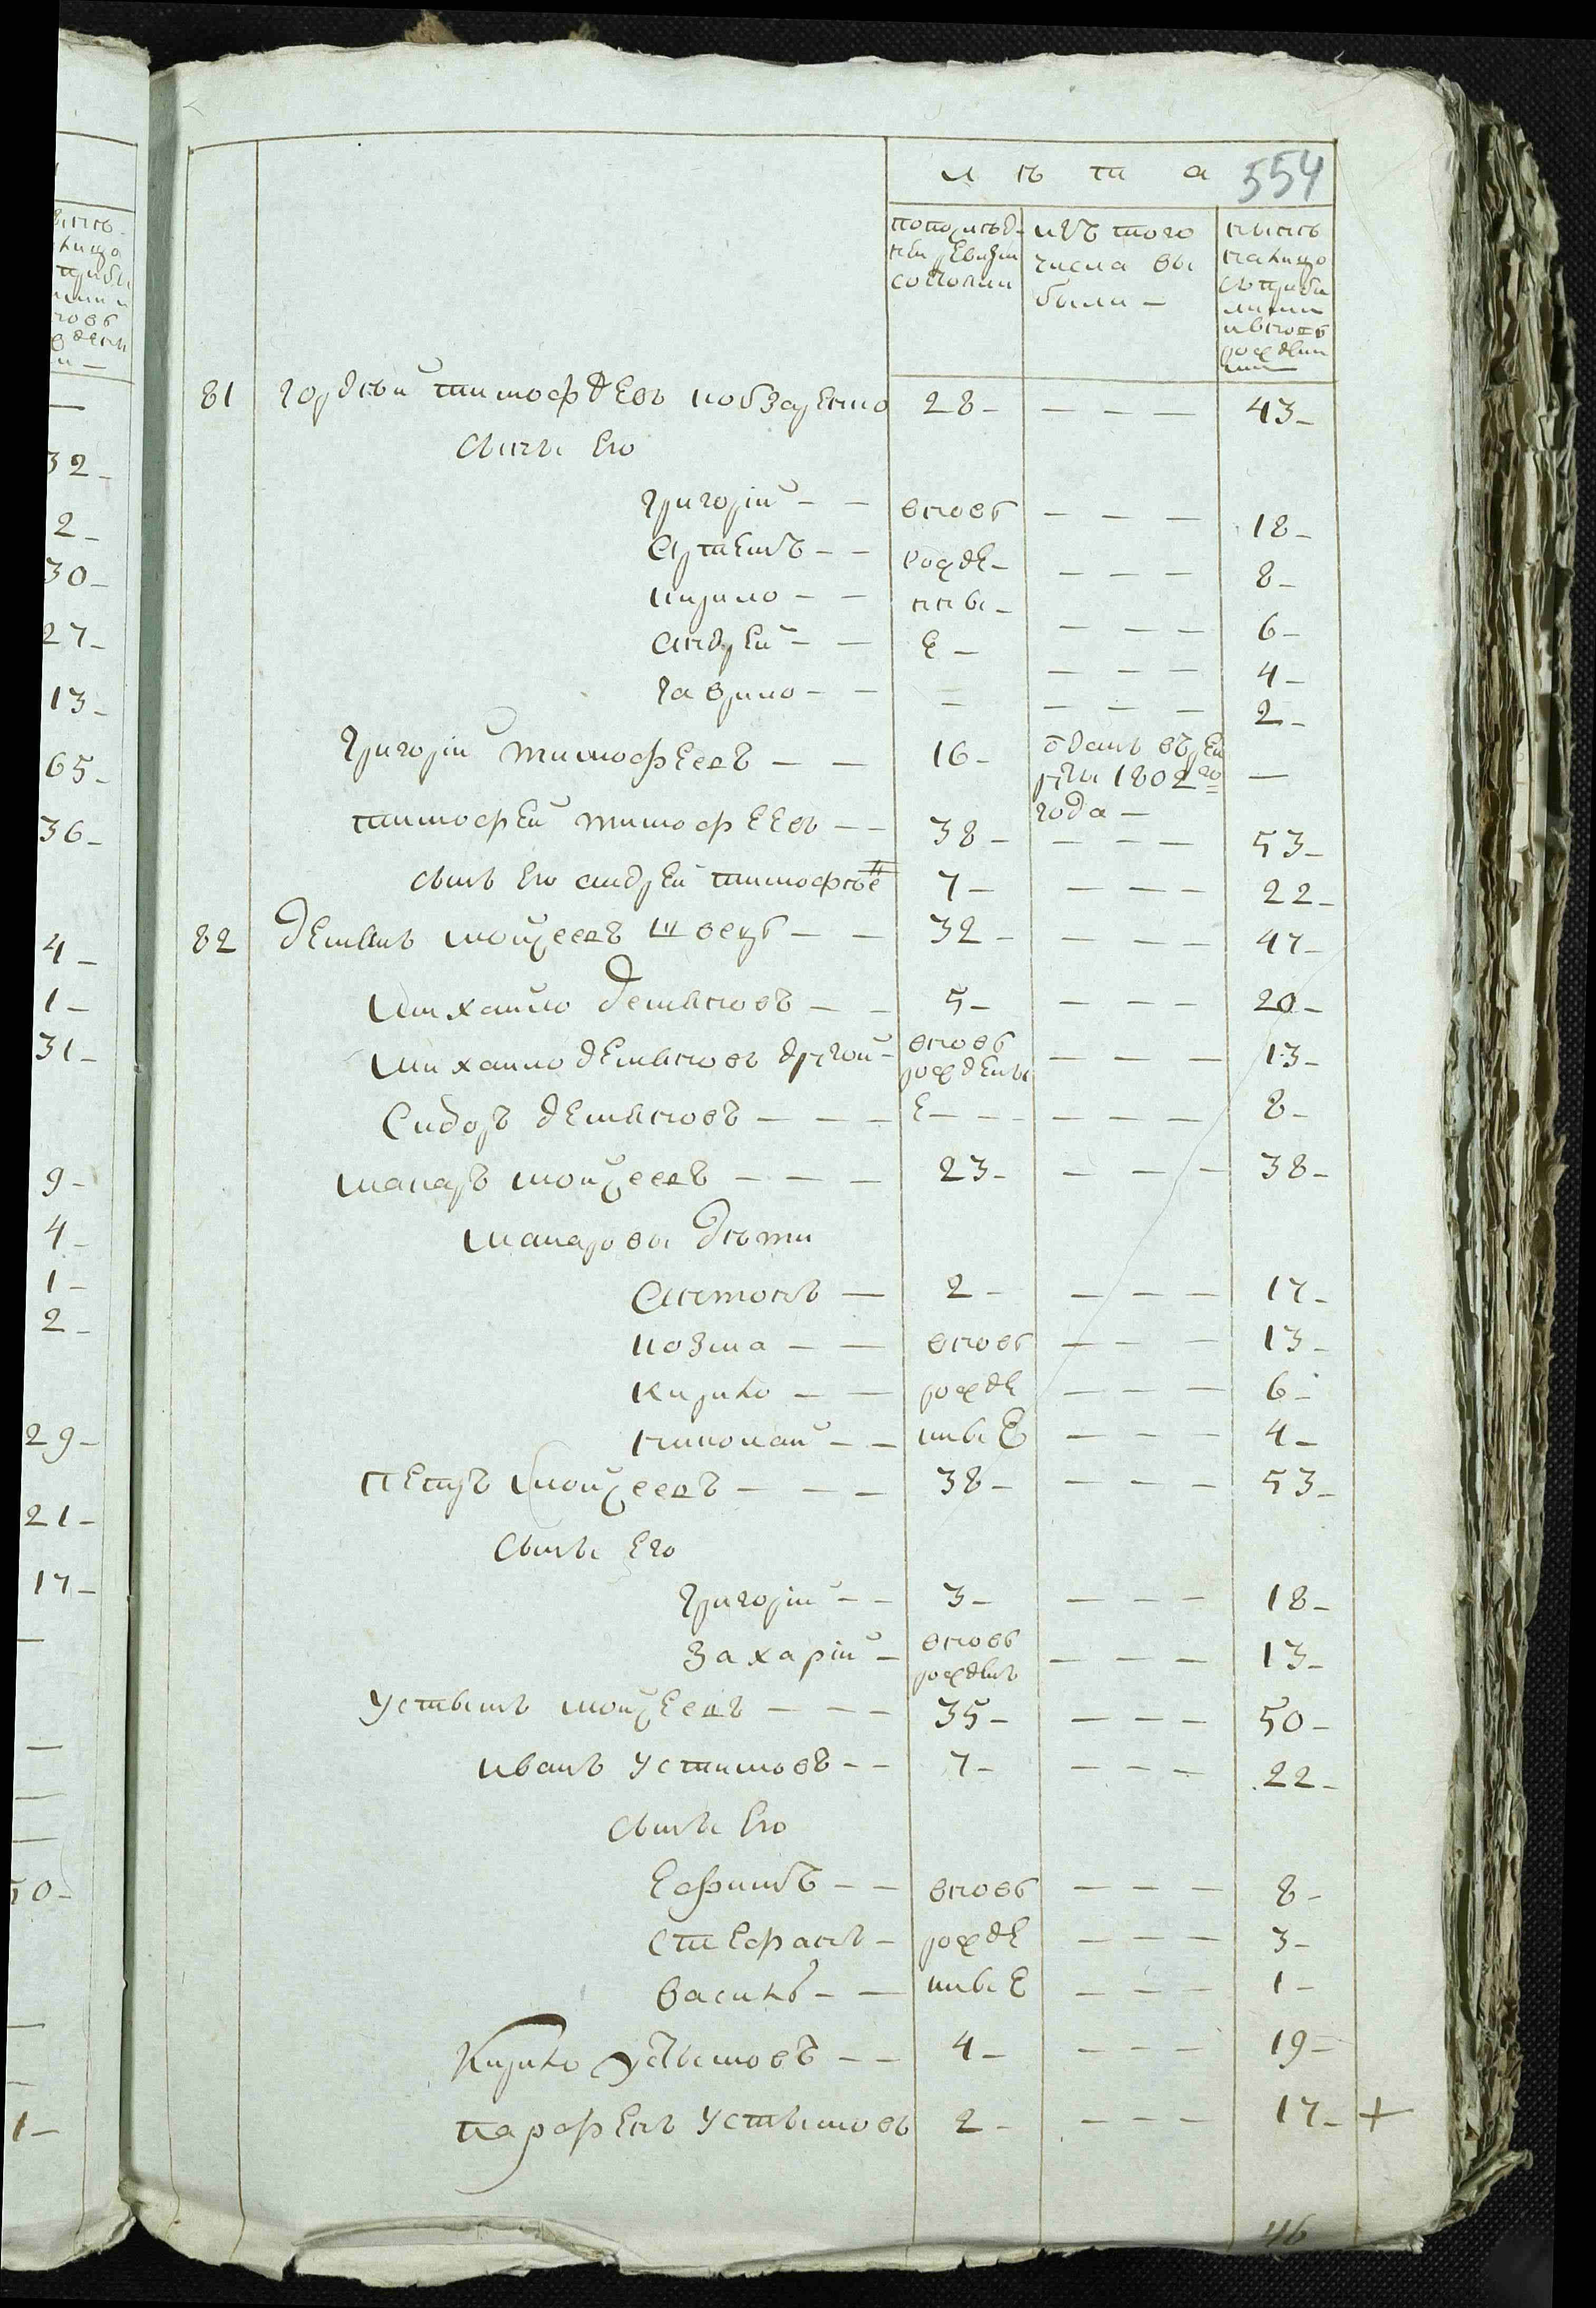 лѣта 554
по последней ревизии состояли
изъ того числа выбыли —
нынѣ на лицо съ прибылыми и вновь рожденными
81 Гордѣй Тимофѣевъ Кобзаренко 28 — — — — 43 —
сыны его
Григорій — — вновь — — — 18 —
Артемъ — — рожде — — — — 8 —
Кирило — — нны — — — — 6 —
Андрей — — е — — — — 4 —
Гаврило — — — — — — 2 —
Григорій Тимофеевъ — — 16 — отданъ въ рекруты 1802го года — —
Тимофей Тимофеевъ — — 38 — — — — 53 —
сынъ его Андрей Тимофѣе 7 — — — — 22 —
82 Демянъ Мойсеевъ Швецъ — — 32 — — — — 47 —
Михайло Демяновъ — — 5 — — — — 20 —
Михайло Демяновъ другой — вновь рожденны — — — 13 —
Сидоръ Демяновъ — — — е — — — — — 8 —
Макаръ Мойсеевъ — — — 23 — — — — 38 —
Макаровы дѣти
Антонъ — 2 — — — — 17 —
Козма — — вновь — — — 13 —
Кирило — — рожде — — — 6 —
Николай — — нные — — — 4 —
Петръ Мойсеевъ — — — 38 — — — — 53 —
сыны его
Григорій — — 3 — — — — 18 —
Захарій — вновь рожденъ — — — 13 —
Устымъ Мойсеевъ — — — 35 — — — — 50 —
Иванъ Устимовъ — — 7 — — — — 22 —
сыны его
Ефимъ — — вновь — — — 8 —
Стефанъ — рожде — — — 3 —
Василь — — нные — — — 1 —
Кирило Устымовъ — — 4 — — — — 19 —
Парфенъ Устымовъ 2 — — — — 17 — +
46